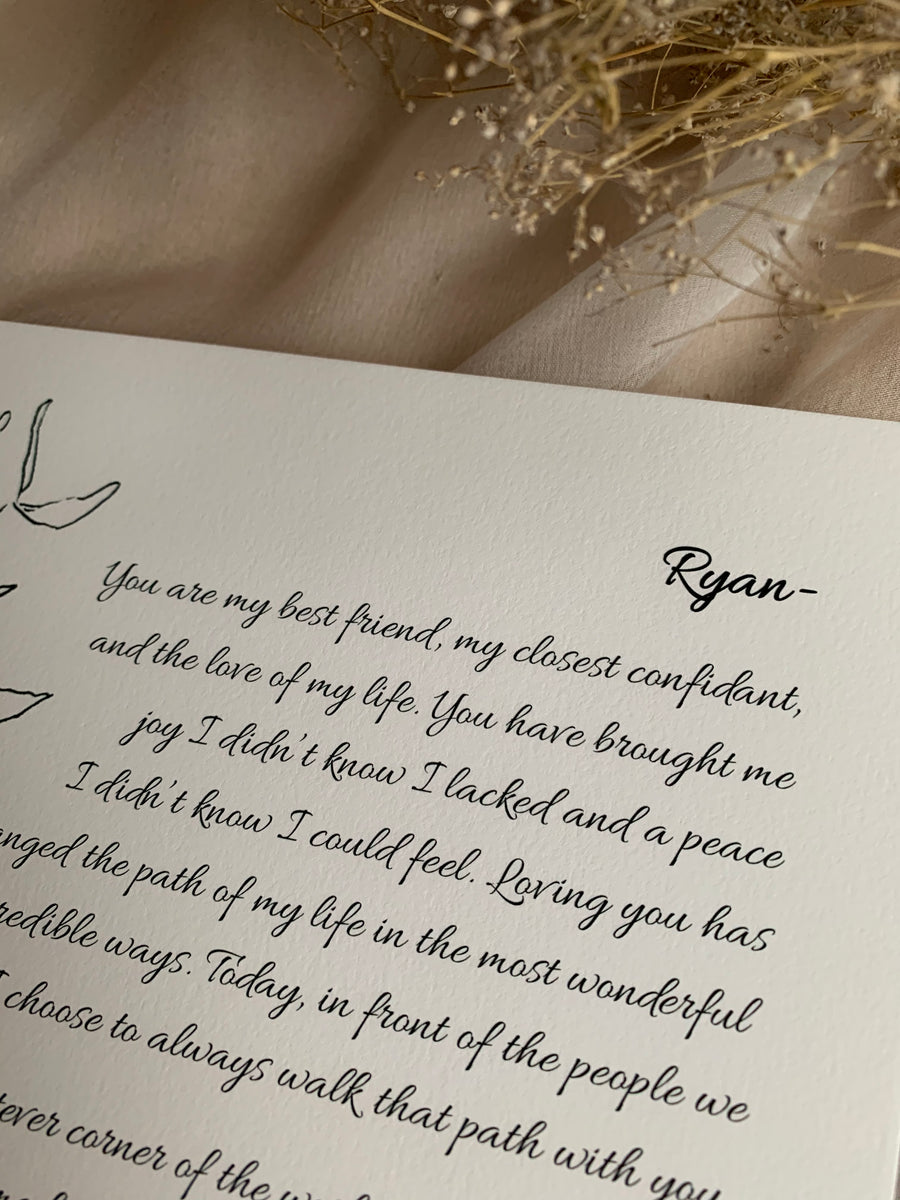 Ryan-
You are my best friend, my closest confidant,
and the love of my life. You have brought me
joy I didn't know I lacked and a peace
I didn't know I could feel. Loving you has
the path of my life in the most wonderful
ways. Today, in front of the people we
I choose to always walk that path with you
corner of the